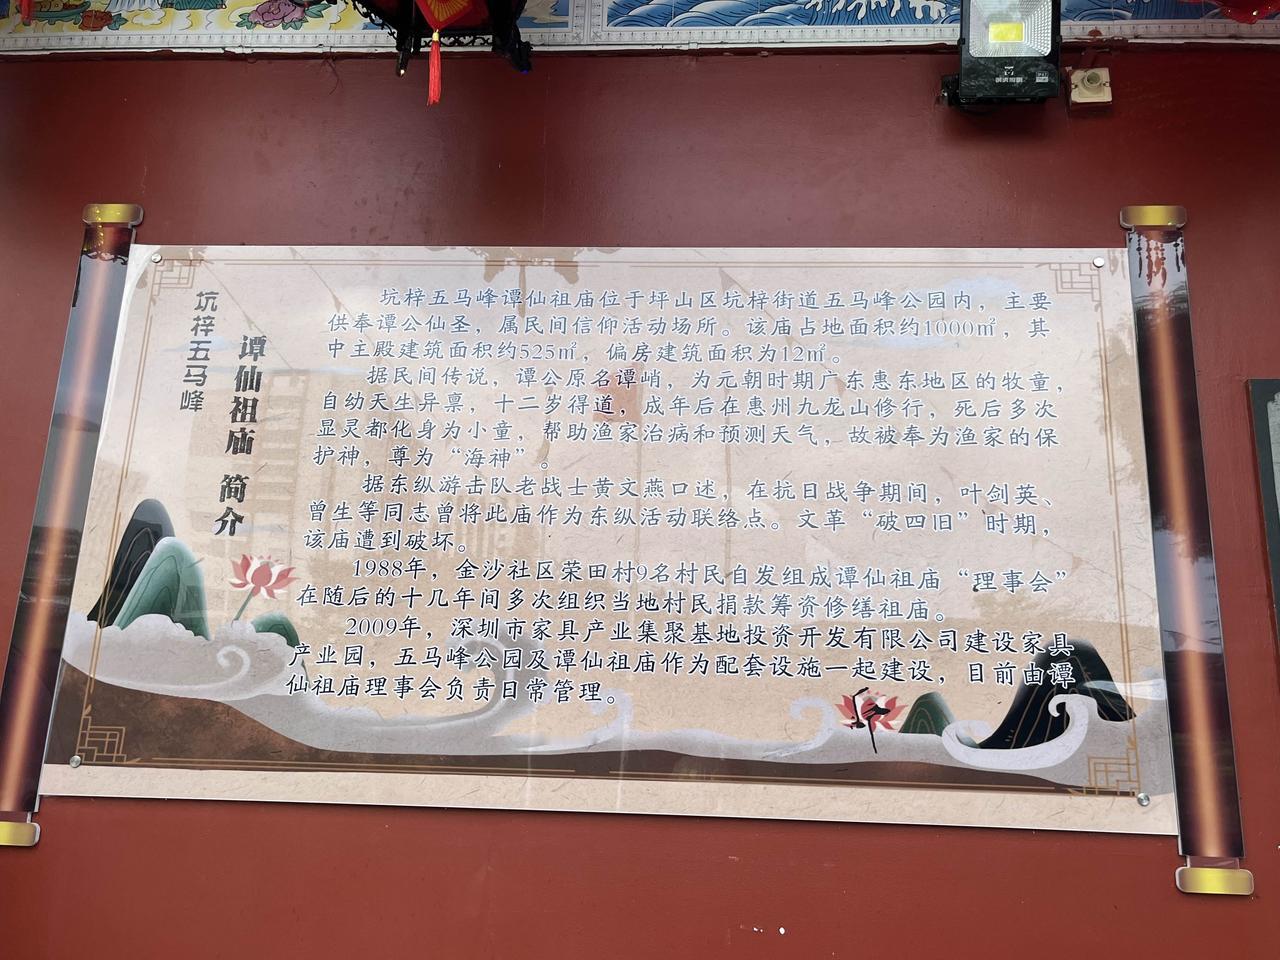 坑梓五马峰
谭仙祖庙 简介
坑梓五马峰谭仙祖庙位于坪山区坑梓街道五马峰公园内，主要
供奉谭公仙圣，属民间信仰活动场所。该庙占地面积约1000㎡，其
中主殿建筑面积约525㎡，偏房建筑面积为12㎡。
据民间传说，谭公原名谭峭，为元朝时期广东惠东地区的牧童，
自幼天生异禀，十二岁得道，成年后在惠州九龙山修行，死后多次
显灵都化身为小童，帮助渔家治病和预测天气，故被奉为渔家的保
护神，尊为“海神”。
据东纵游击队老战士黄文燕口述，在抗日战争期间，叶剑英、
曾生等同志曾将此庙作为东纵活动联络点。文革“破四旧”时期，
该庙遭到破坏。
1988年，金沙社区荣田村9名村民自发组成谭仙祖庙“理事会”
在随后的十几年间多次组织当地村民捐款筹资修缮祖庙。
2009年，深圳市家具产业集聚基地投资开发有限公司建设家具
产业园，五马峰公园及谭仙祖庙作为配套设施一起建设，目前由谭
仙祖庙理事会负责日常管理。